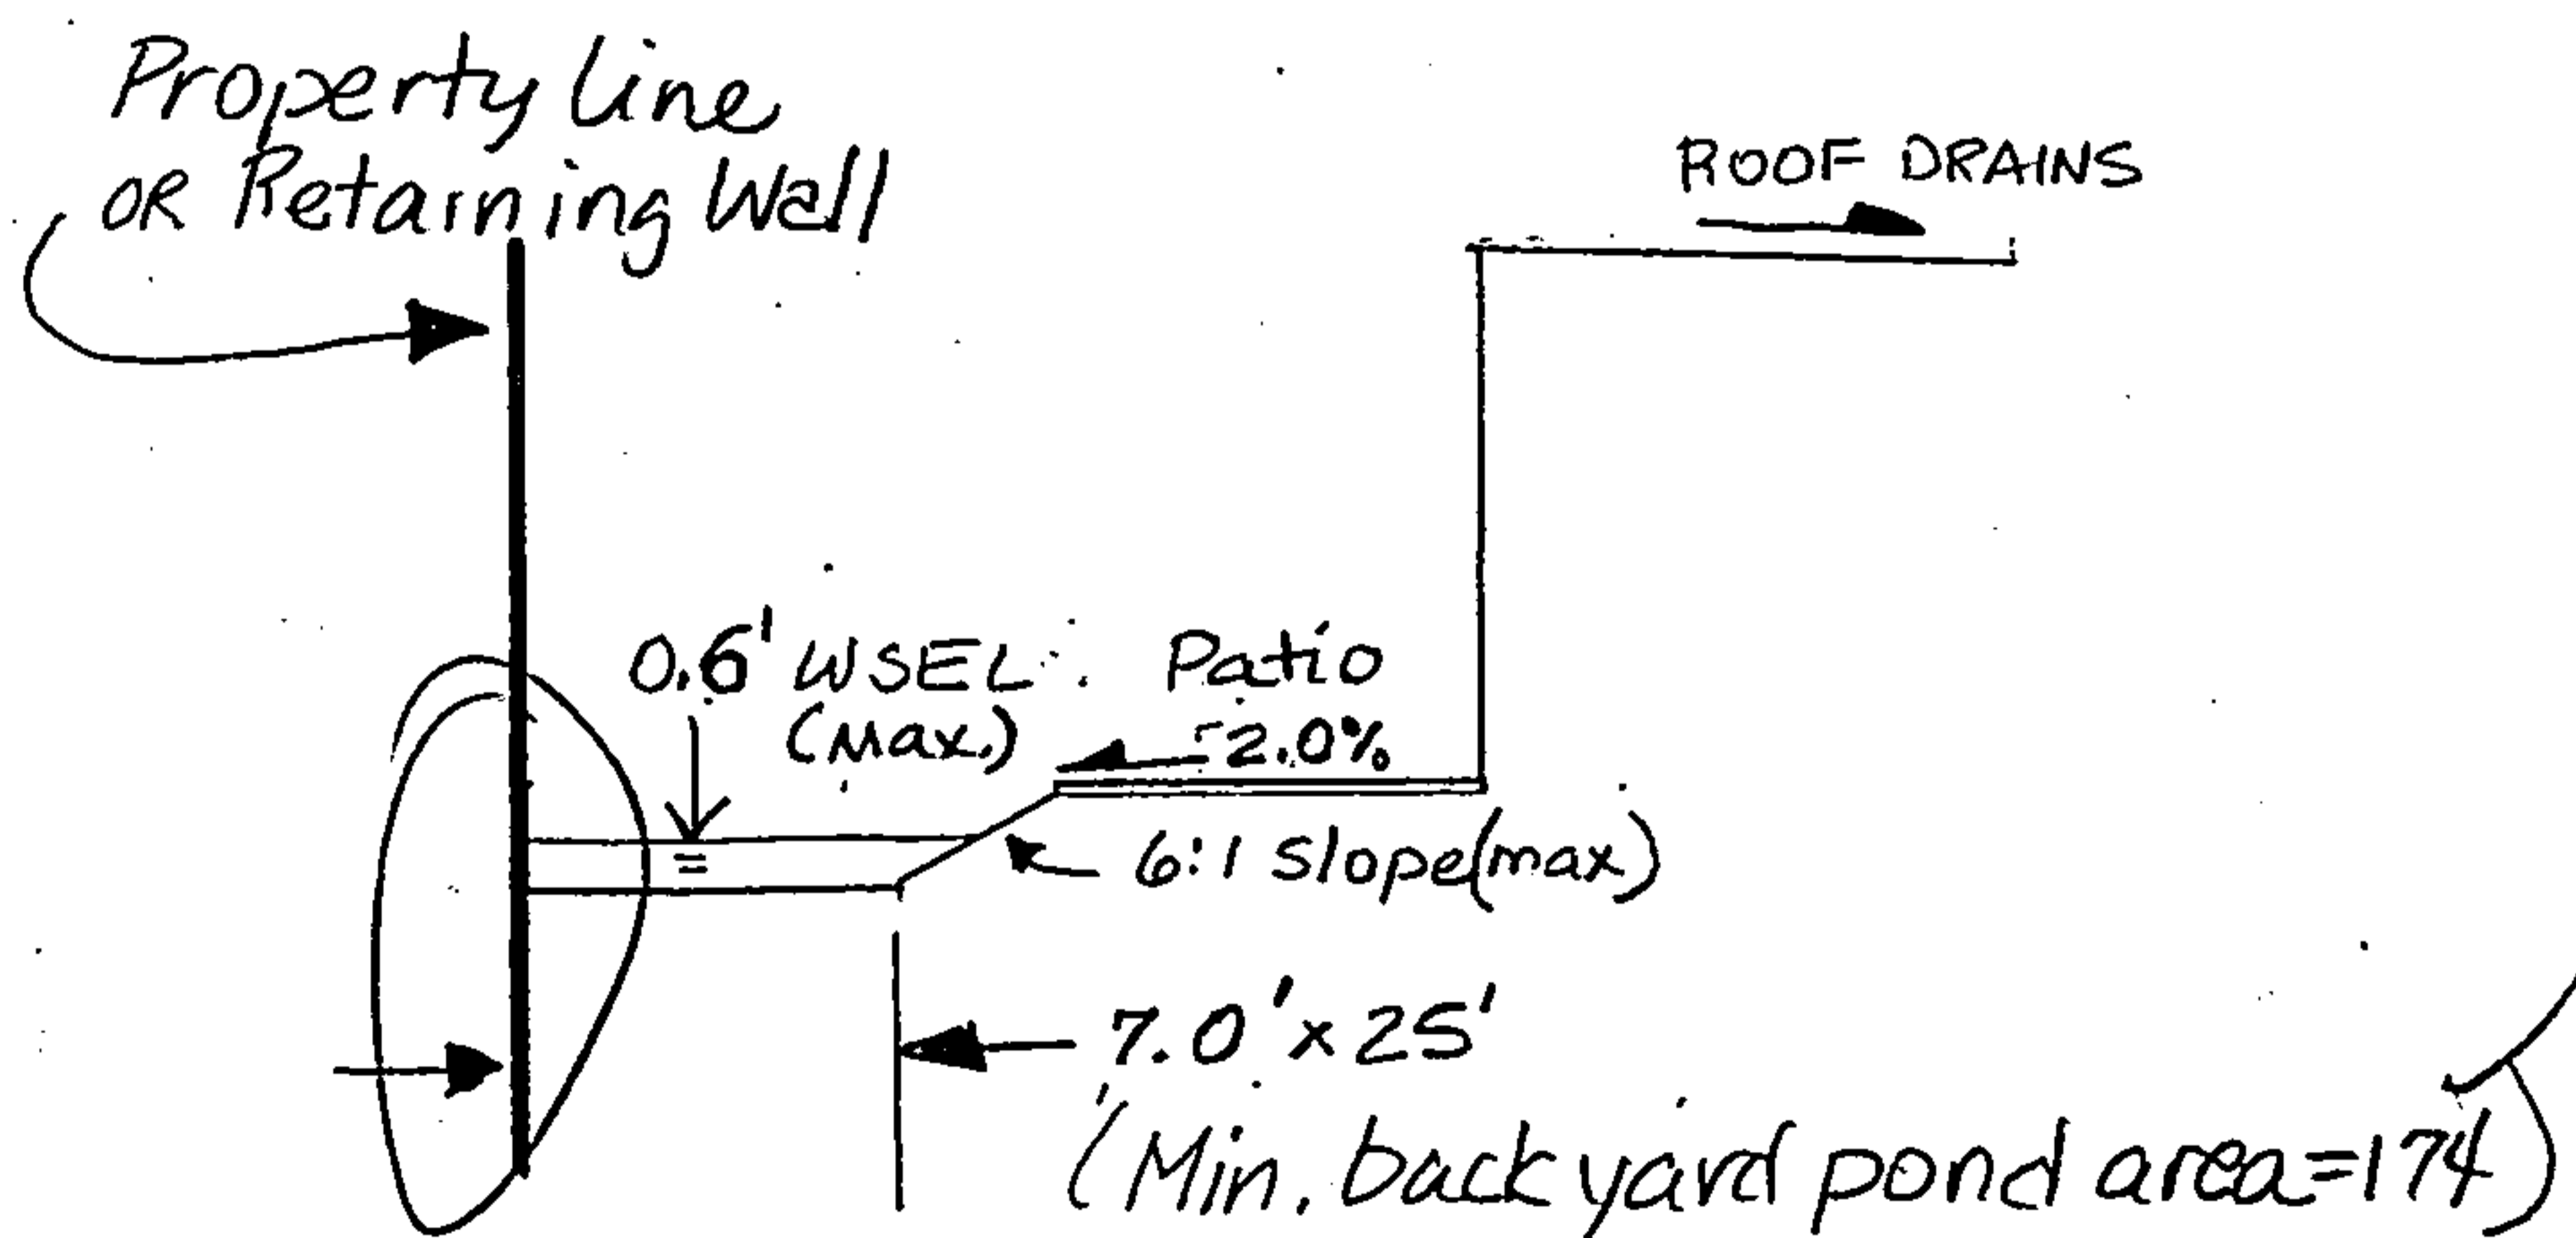 Property line
OR Retaining Wall
ROOF DRAINS
0.6' WSEL
(Max.)
Patio
2.0%
6:1 Slope(max)
7.0' x 25'
(Min. backyard pond area=174)